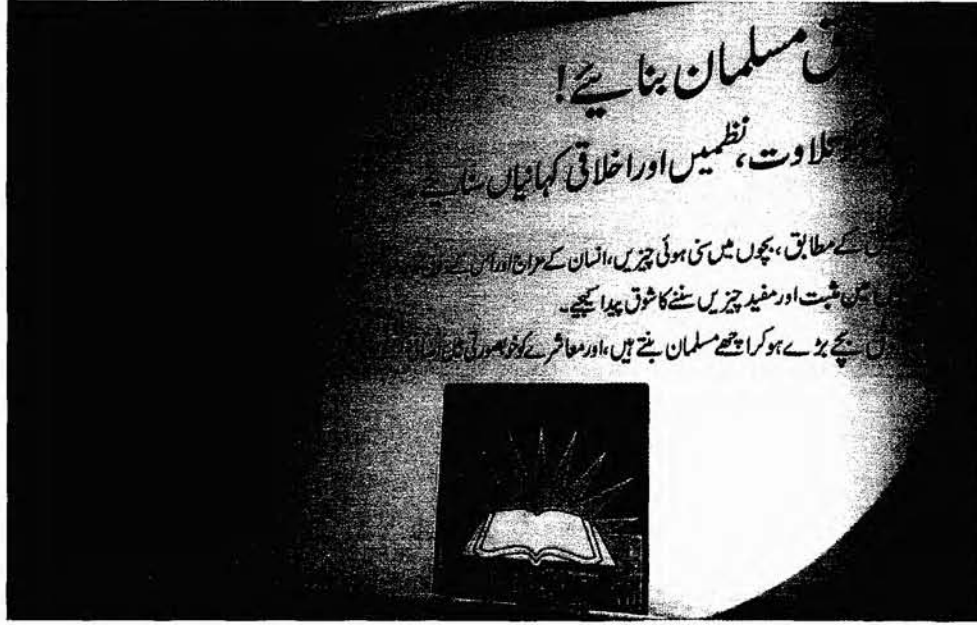 مسلمان بنایئے!
تلاوت، نظمیں اور اخلاقی کہانیاں سنایئے
کے مطابق، بچوں میں سنی ہوئی چیزیں، انسان کے مزاج اور اُس کے
مثبت اور مفید چیزیں سننے کا شوق پیدا کیجیے۔
بچے بڑے ہوکر اچھے مسلمان بنتے ہیں، اور معاشرے کو خوبصورتی